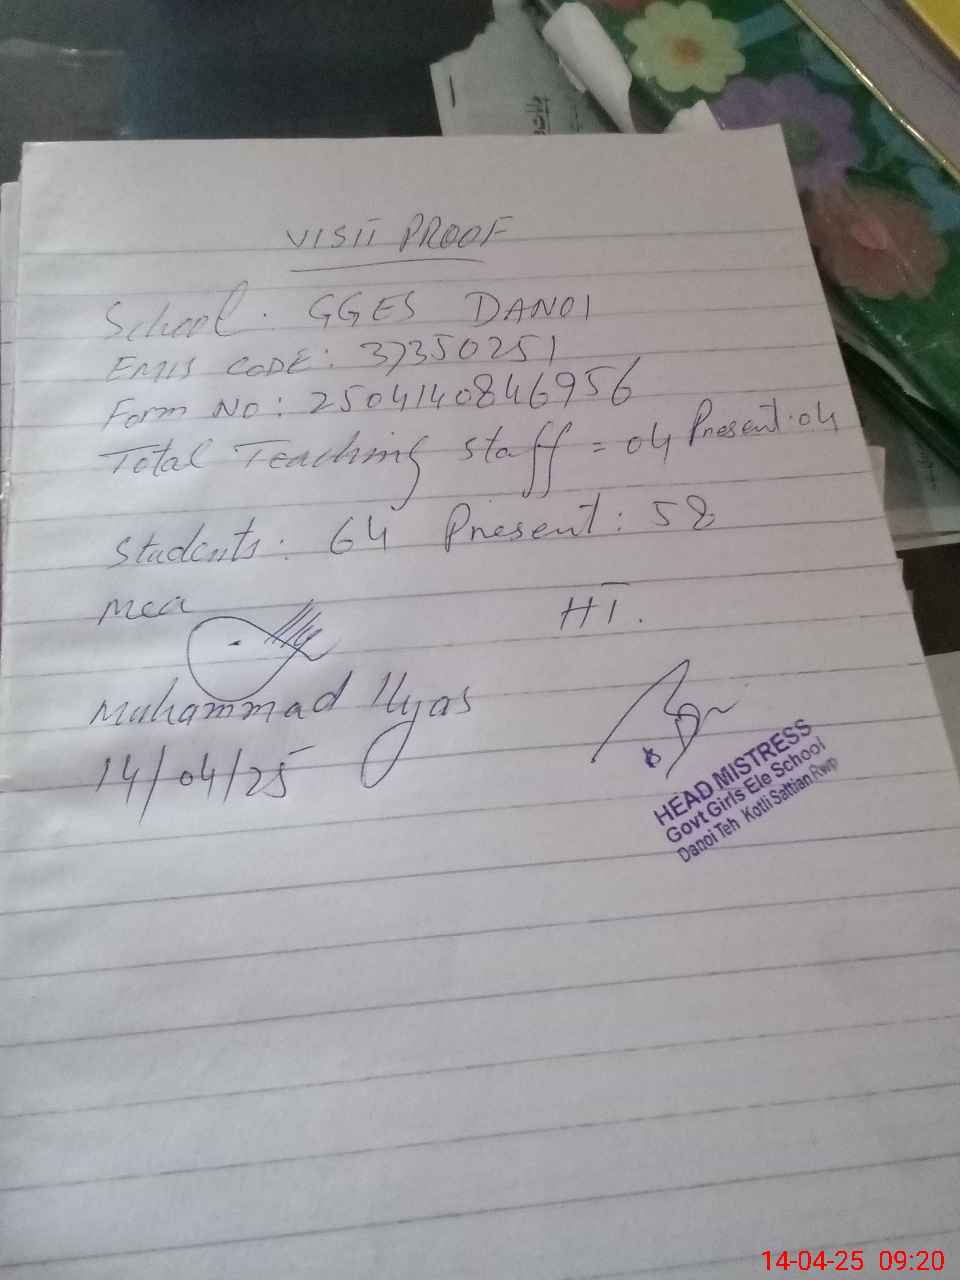 VISIT PROOF
School: GGES DANOI
EMIS CODE: 37350251
Form No: 2504140846956
Total Teaching Staff = 04 Present: 04
Students: 64 Present: 58
MEA
HT.
Muhammad Ilyas
14/04/25
HEAD MISTRESS
Govt Girls Ele School
Danoi Teh Kotli Sattian Rwp
14-04-25 09:20